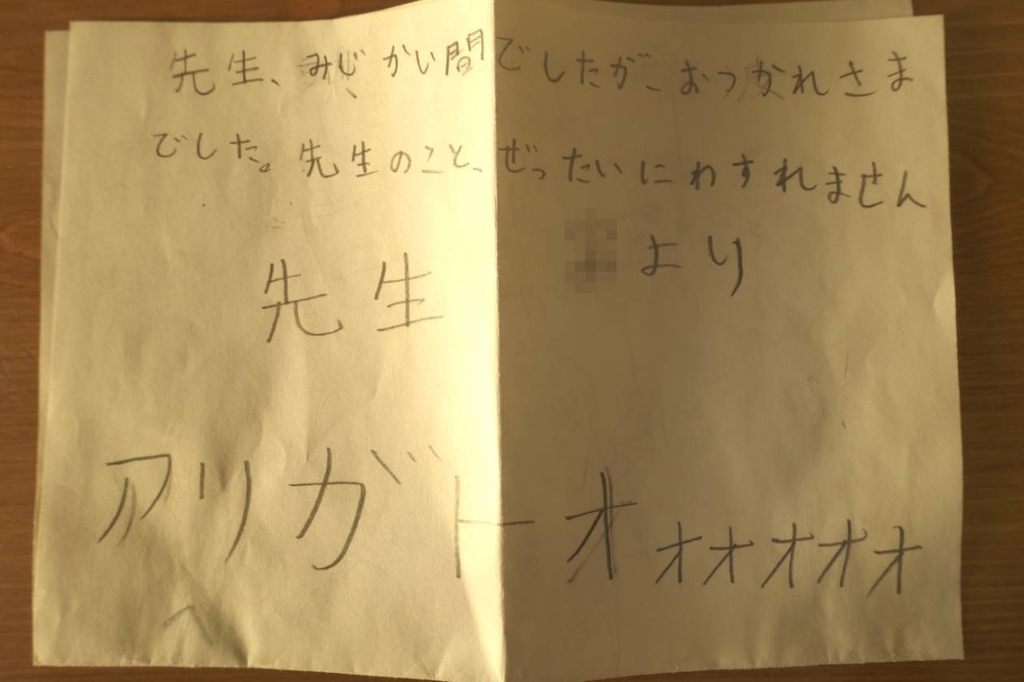 先生、みじかい間でしたが、おつかれさま
でした。先生のこと、ぜったいにわすれません
より
先生
アリガトオォォォォォ